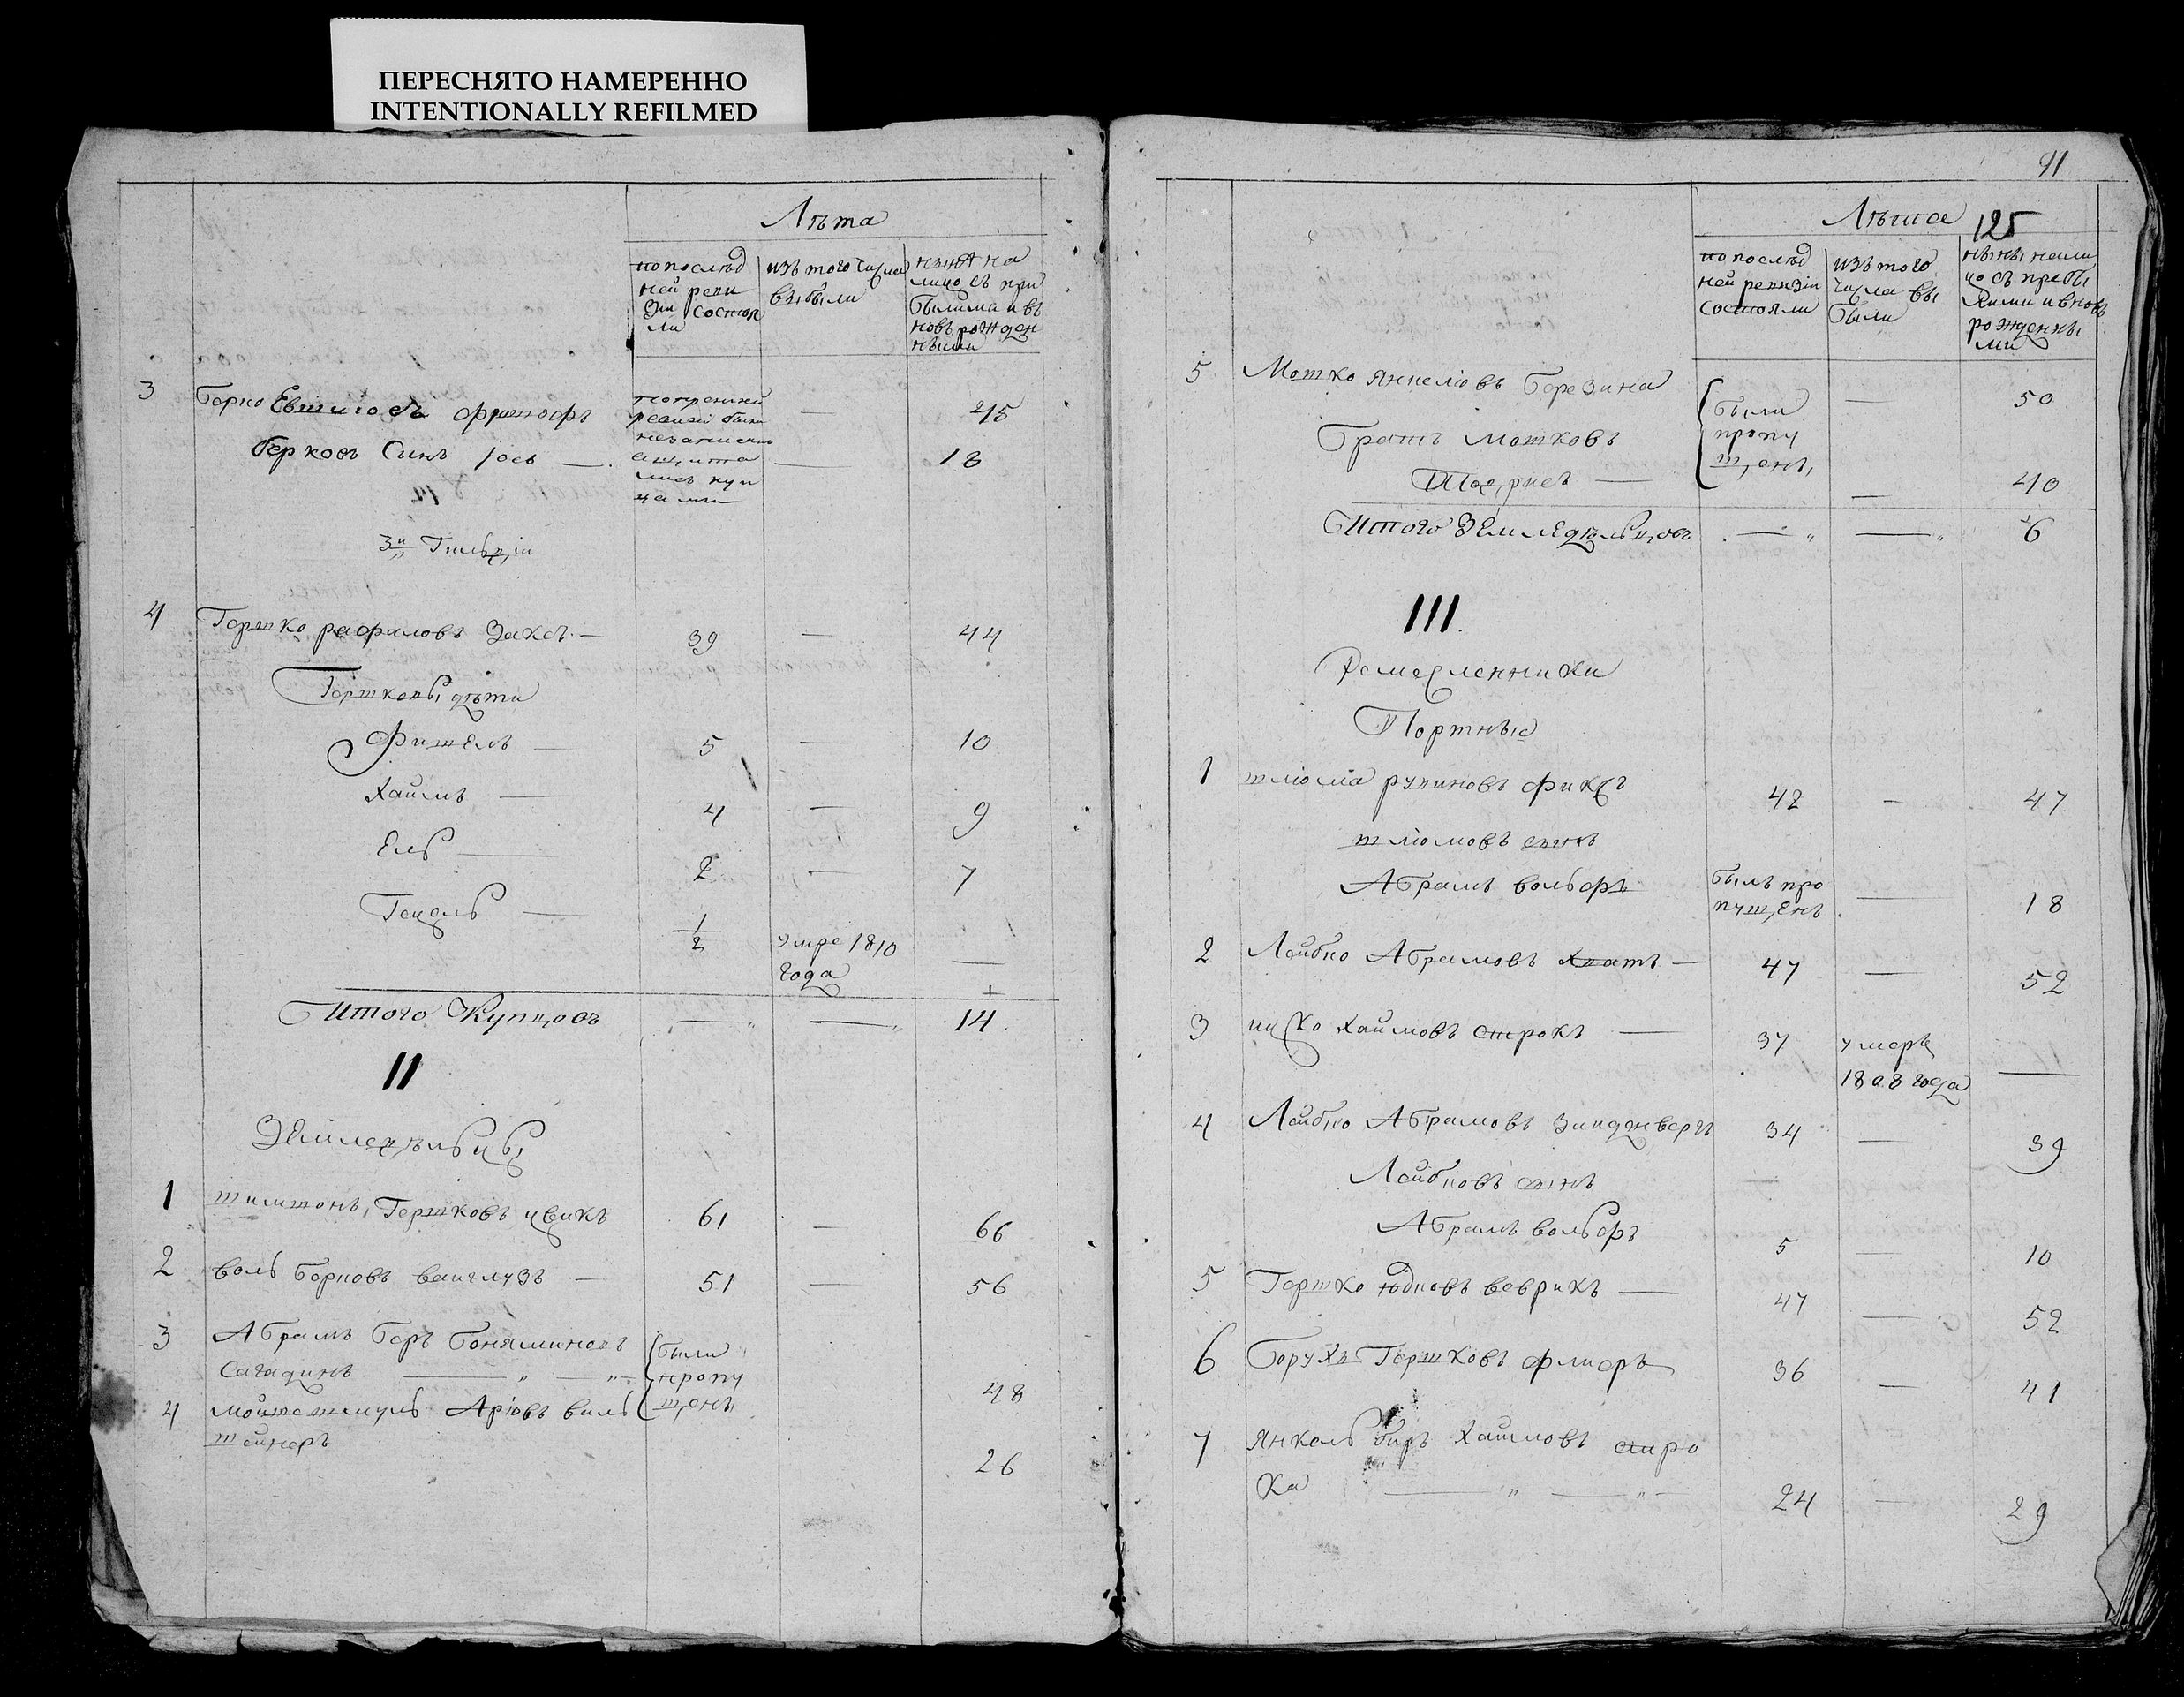 ПЕРЕСНЯТО НАМЕРЕННО
INTENTIONALLY REFILMED
Лѣта
по послѣд
ней реви
зіи состоя
ли
изъ того числа
выбыли
нынѣ на
лицо съ при
былыми и въ
новь рожден
ными
3 Берко фришофъ — 45
Берковъ Сынъ Іось — 18
ревизіи были
3й Гильдіи
4 Гершко рафаловъ Заксъ — 39 — 44
Гершковы дѣти
Фишель — 5 — 10
Хаимъ — 4 — 9
Ель — 2 — 7
Гецель — 1/2 умре 1810 года —
Итого Купцовъ — „ — „ 14
II
Земледѣльцы
1 Гершковъ цвикъ 61 — 66
2 воль Берковъ ваинлузъ — 51 — 56
3 Абрамъ Беръ Беняминовъ
Сагадинъ — „ — „ были пропу 48
4 Аріовъ виль щены
штейнеръ 26
91
125
Лѣта
по послѣд
ней ревизіи
состояли
изъ того
числа вы
были
нынѣ нали
цо съ прибы
лыми и вновь
рожденны
ми
5 Мошко янкелювъ Березина были — 50
Братъ мошковъ пропу
щены, — 40
Итого Земледѣльцовъ — „ — „ 6
III.
Ремесленники
Портные
1 шліома рувиновъ фиксъ 42 — 47
шліомовъ сынъ
Абрамъ вольфъ былъ про — 18
пущенъ.
2 Лейбко Абрамовъ — 47 — 52
3 ицко хаимовъ строкъ — 37 умеръ
1808 года —
4 Лейбко Абрамовъ Зинденбергъ 34 — 39
Лейбковъ сынъ
Абрамъ вольфъ 5 — 10
5 Гершко юдковъ веврикъ — 47 — 52
6 Борухъ Гершковъ флисръ 36 — 41
7 янкель биръ Хаимовъ стро
ка — „ — „ — 24 — 29